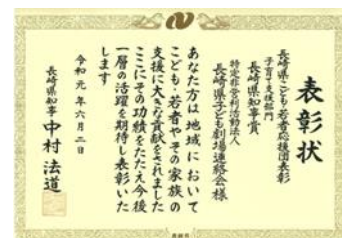 表彰状
長崎県こども・若者応援団表彰
子育て支援部門
長崎県知事賞
特定非営利活動法人
長崎県子ども劇場連絡会様
あなた方は地域において
こども・若者やその家族の
支援に大きな貢献をされました
ここにその功績をたたえ今後
一層の活躍を期待し表彰いた
します
令和元年六月二日
長崎県知事 中村法道